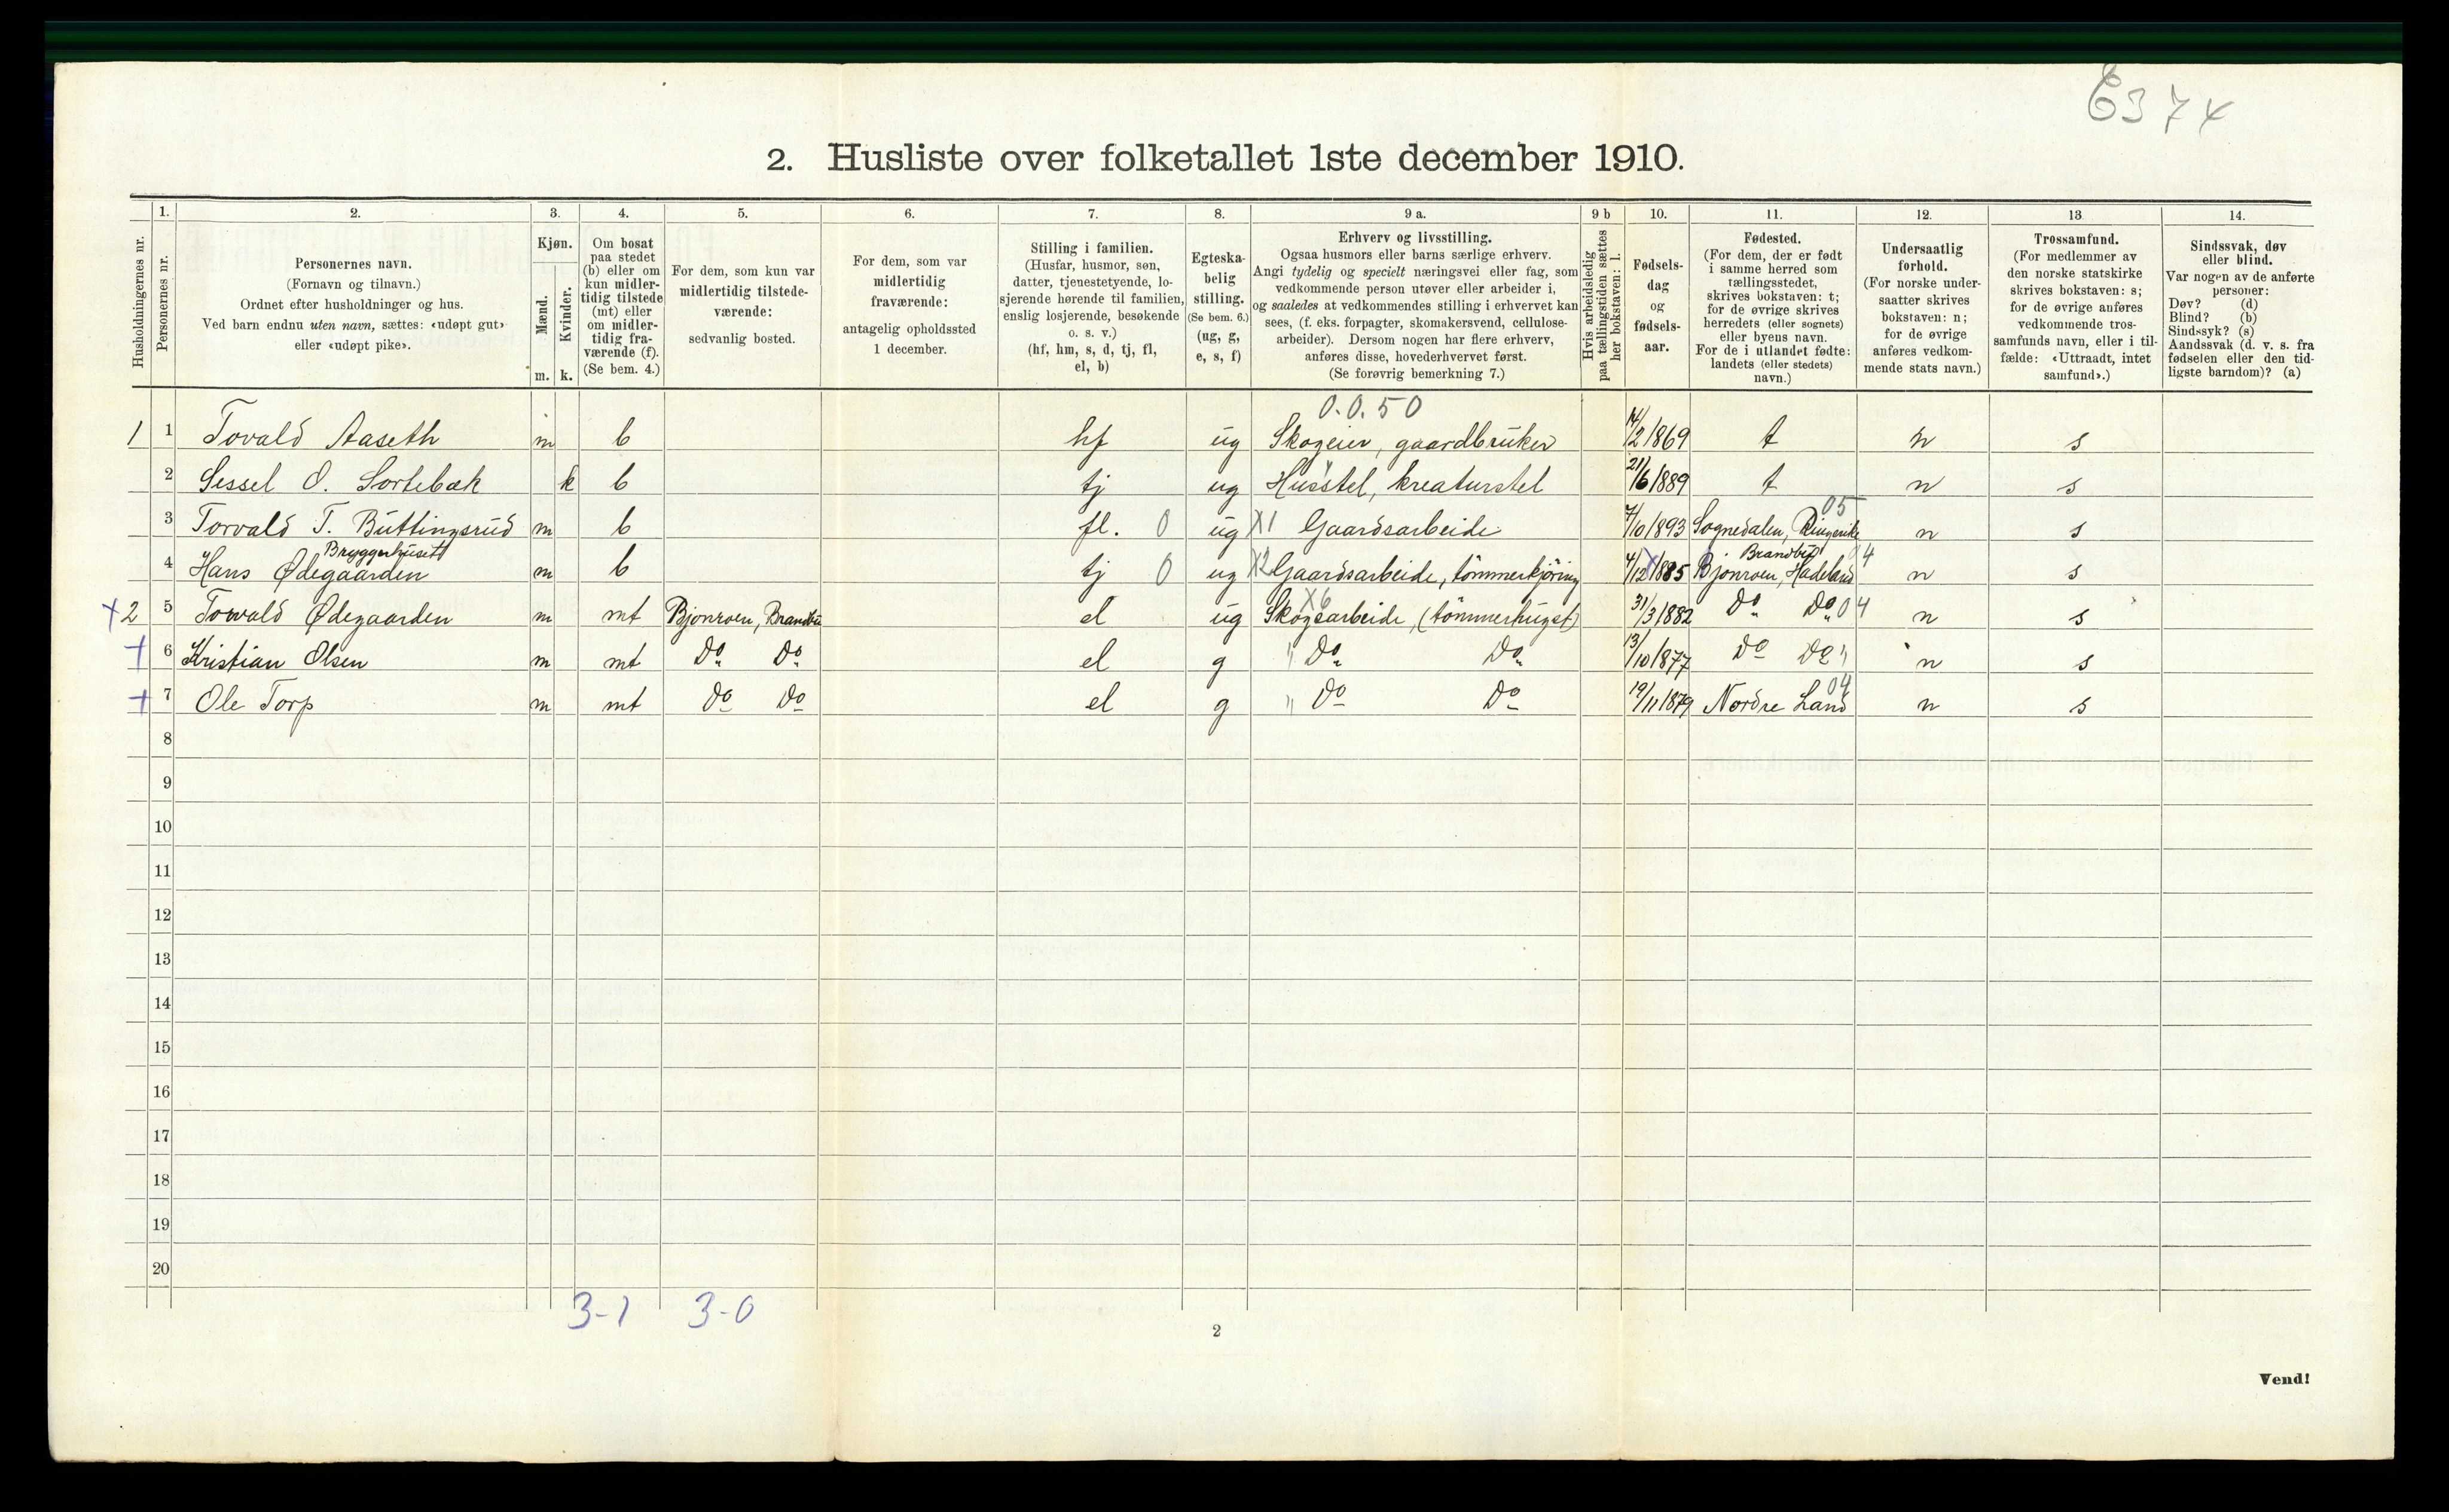 E374
2. Husliste over folketallet 1ste december 1910.
1. 2. 3. 4. 5. 6. 7. 8. 9 a. 9 b 10. 11. 12. 13 14.
Husholdningernes nr.
Personernes nr.
Personernes navn.
(Fornavn og tilnavn.)
Ordnet efter husholdninger og hus.
Ved barn endnu uten navn, sættes: «udøpt gut»
eller «udøpt pike».
Kjøn.
Mænd.
Kvinder.
m. k.
Om bosat
paa stedet
(b) eller om
kun midler-
tidig tilstede
(mt) eller
om midler-
tidig fra-
værende (f).
(Se bem. 4.)
For dem, som kun var
midlertidig tilstede-
værende:
sedvanlig bosted.
For dem, som var
midlertidig
fraværende:
antagelig opholdssted
1 december.
Stilling i familien.
(Husfar, husmor, søn,
datter, tjenestetyende, lo-
sjerende hørende til familien,
enslig losjerende, besøkende
o. s. v.)
(hf, hm, s, d, tj, fl,
el, b)
Egteska-
belig
stilling.
(Se bem. 6.)
(ug, g,
e, s, f)
Erhverv og livsstilling.
Ogsaa husmors eller barns særlige erhverv.
Angi tydelig og specielt næringsvei eller fag, som
vedkommende person utøver eller arbeider i,
og saaledes at vedkommendes stilling i erhvervet kan
sees, (f. eks. forpagter, skomakersvend, cellulose-
arbeider). Dersom nogen har flere erhverv,
anføres disse, hovederhvervet først.
(Se forøvrig bemerkning 7.)
Hvis arbeidsledig
paa tællingstiden sættes
her bokstaven: l.
Fødsels-
dag
og
fødsels-
aar.
Fødested.
(For dem, der er født
i samme herred som
tællingsstedet,
skrives bokstaven: t;
for de øvrige skrives
herredets (eller sognets)
eller byens navn.
For de i utlandet fødte:
landets (eller stedets)
navn.)
Undersaatlig
forhold.
(For norske under-
saatter skrives
bokstaven: n;
for de øvrige
anføres vedkom-
mende stats navn.)
Trossamfund.
(For medlemmer av
den norske statskirke
skrives bokstaven: s;
for de øvrige anføres
vedkommende tros-
samfunds navn, eller i til-
fælde: «Uttraadt, intet
samfund».)
Sindssvak, døv
eller blind.
Var nogen av de anførte
personer:
Døv? (d)
Blind? (b)
Sindssyk? (s)
Aandssvak (d. v. s. fra
fødselen eller den tid-
ligste barndom)? (a)
0.0.50
1 1 Tovald Aaseth m b hf ug Skogeier, gaardbruker 14/2 1869 t n s
2 Sessel O. Sortebæk k b tj ug Husstel, kreaturstel 21/6 1889 t n s
05
3 Torvald T. Buttingsrud m b fl. 0 ug X1 Gaardsarbeide 7/10 1893 Sognedalen, Ringerike n s
Bryggerhuset Brandbu 04
4 Hans Ødegaarden m b tj 0 ug X2 Gaardsarbeide, tømmerkjøring 4/12 1885 Bjonroen, Hadeland n s
X6
+2 5 Torvald Ødegaarden m mt Bjonroen, Brandbu el ug Skogsarbeide, (tømmerhugst) 31/3 1882 Do Do 04 n s
+ 6 Kristian Olsen m mt Do Do el g " Do Do 13/10 1877 Do Do " n s
04
+ 7 Ole Torp m mt Do Do el g " Do Do 19/11 1879 Nordre Land n s
8
9
10
11
12
13
14
15
16
17
18
19
20
3-1 3-0
2
Vend!